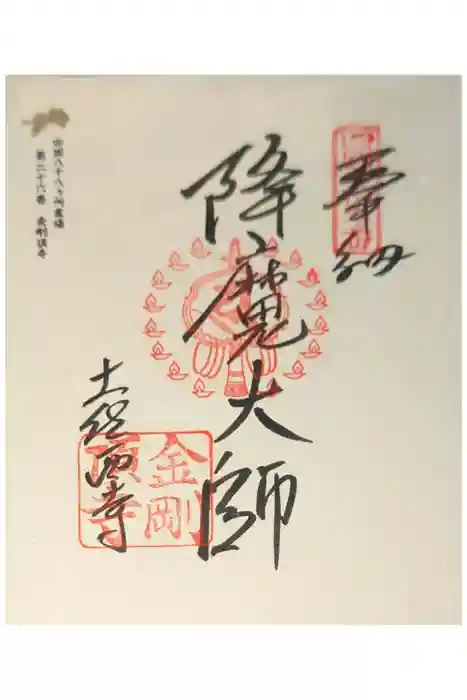 奉納
降魔大師
土佐西寺
金剛
頂寺
四国八十八ヶ所霊場
第二十六番 金剛頂寺